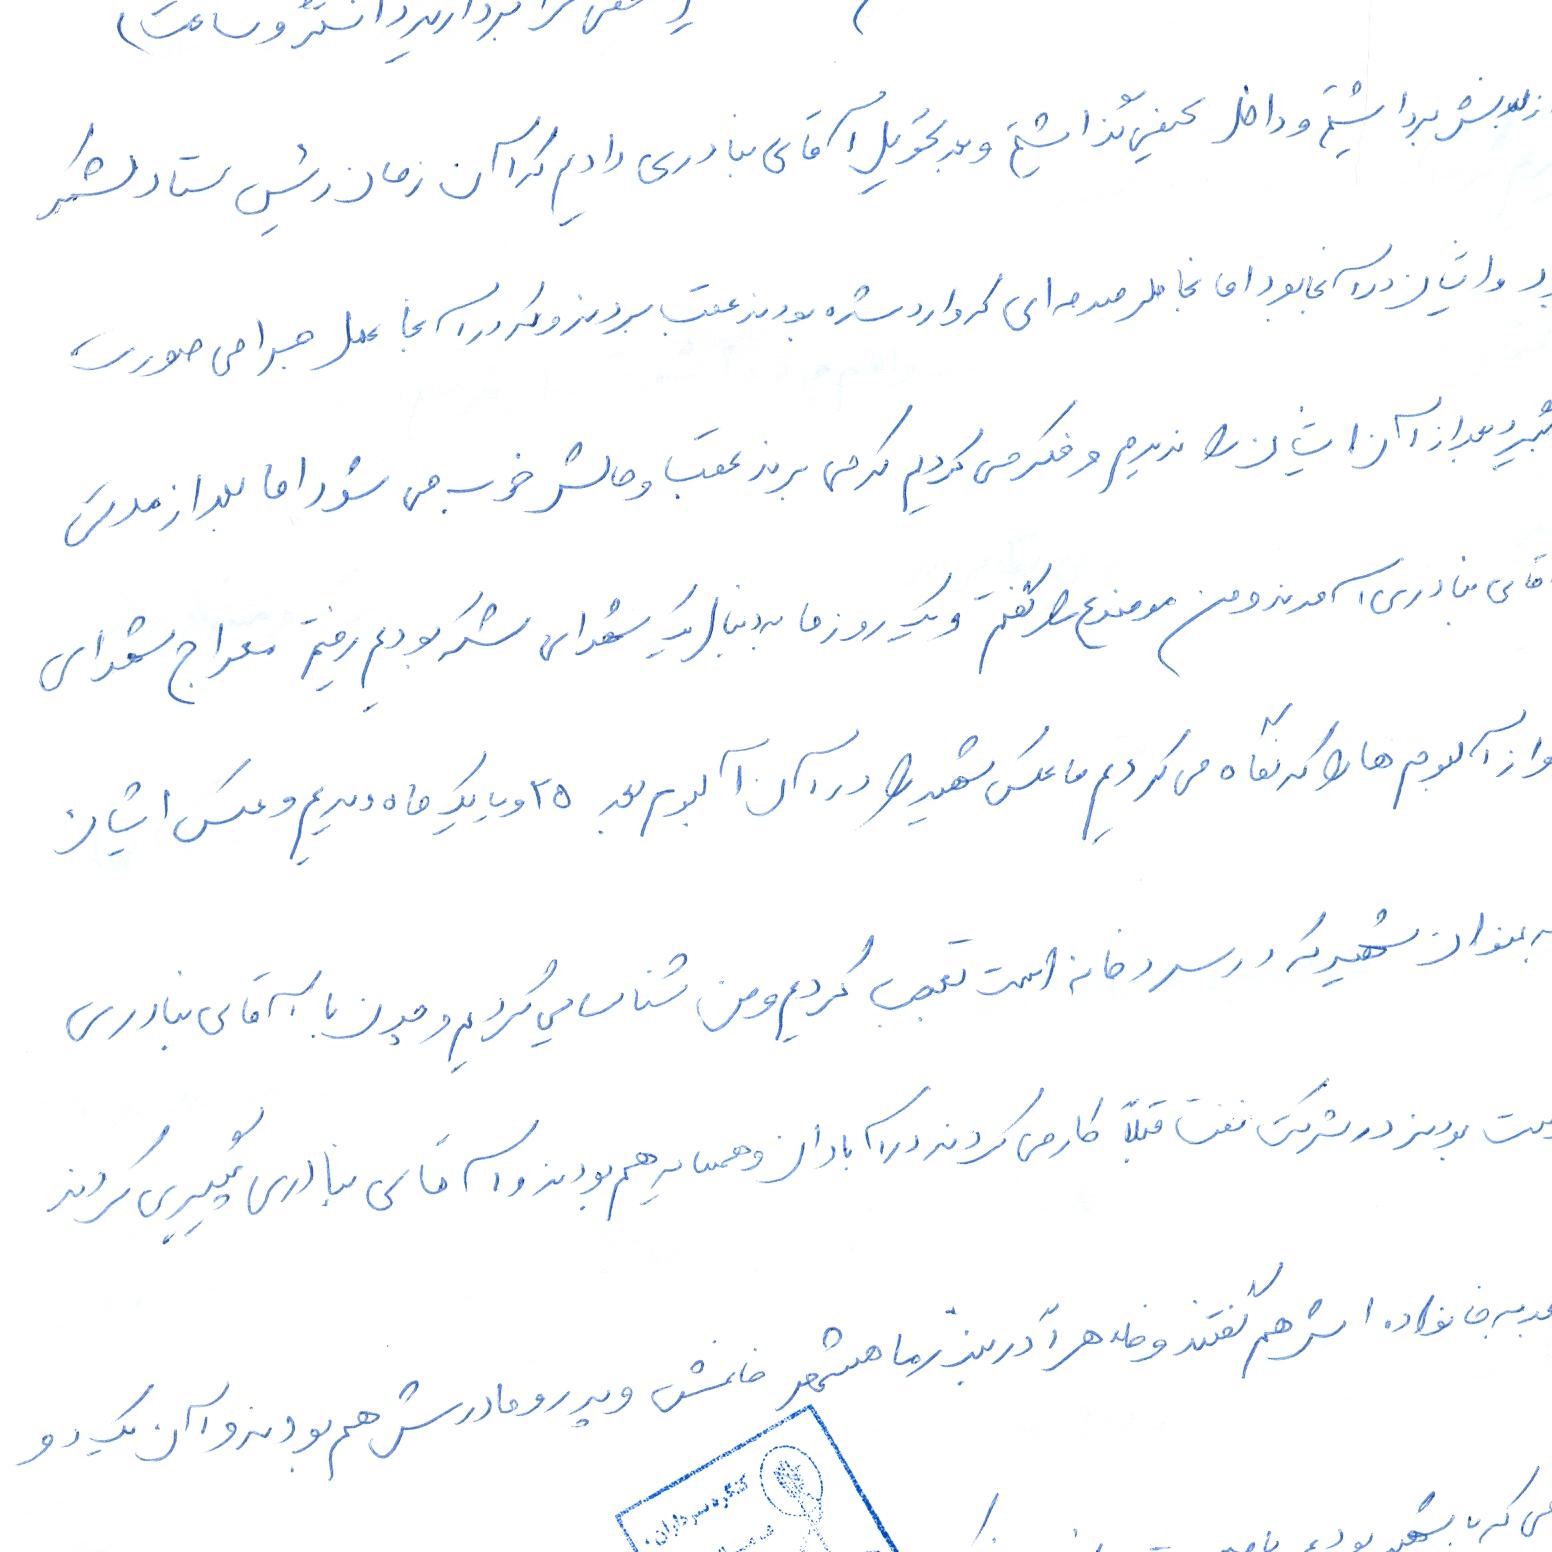 بردارید دانستر و ساعت)
برداشتیم و داخل کیفی گذاشتیم و بعد تحویل آقای بنادری دادیم که آن زمان رئیس ستاد لشکر
و ایشان در آنجا بود اما بخاطر صدمه ای که وارد شده بودند عقب بردند و که در آنجا عمل جراحی صورت
بعد از آن ایشان را ندیدیم و فکر می کردیم که می برند عقب و حالش خوب می شود اما بعد از مدتی
بنادری آمدند و من موضوع را گفتم و یک روز ما به دنبال یک شهدای لشکر بودیم رفتیم معراج شهدای
از آلبوم ها را که نگاه می کردیم ما عکس شهید را در آن آلبوم بعد ۲۵ و یا یک ماه دیدیم و عکس ایشان
عنوان شهید که در سردخانه است تعجب کردیم و من شناسایی کردیم و چون با آقای بنادری
بودند در شرکت نفت قبلاً کار می کردند در آبادان و همسایه هم بودند و آقای بنادری پیگیری کردند
به خانواده اش هم گفتند و ظاهراً در بندر ماهشهر خانمش و پدر و مادرش هم بودند و آن یک دو
که با شهید بودیم
کنگره سرداران